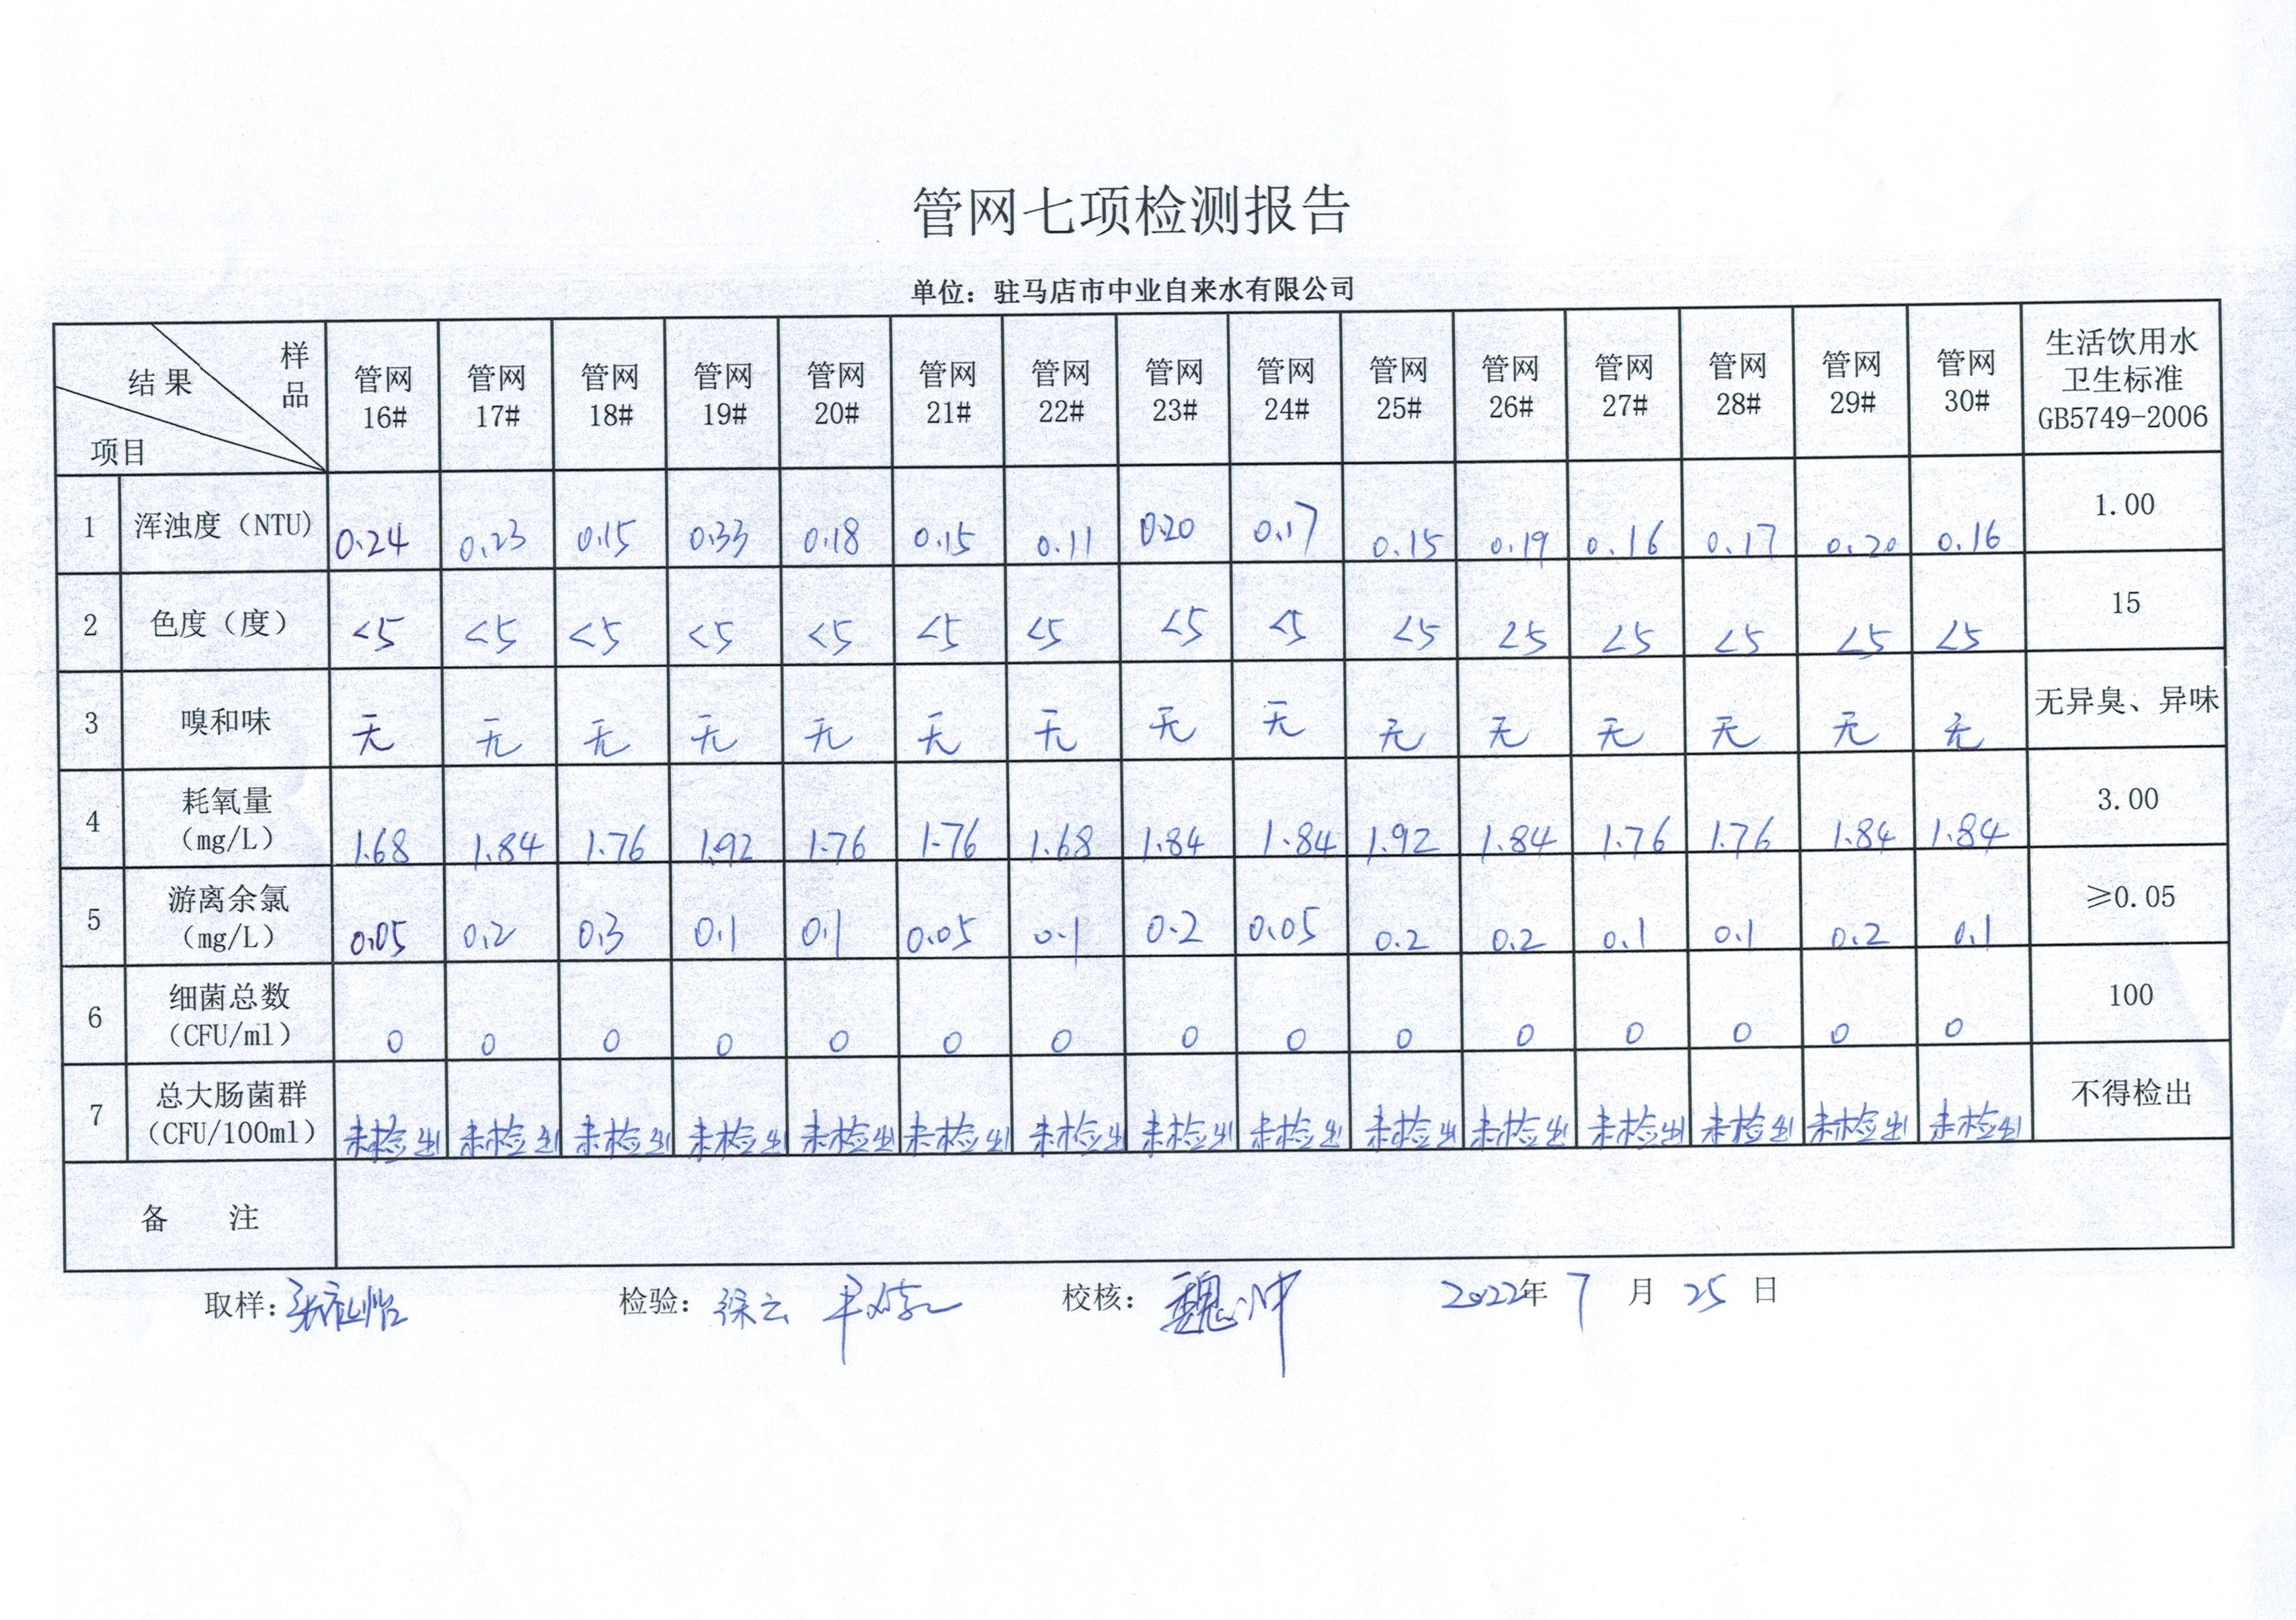 管网七项检测报告
单位：驻马店市中业自来水有限公司
样品 结果 项目 管网16# 管网17# 管网18# 管网19# 管网20# 管网21# 管网22# 管网23# 管网24# 管网25# 管网26# 管网27# 管网28# 管网29# 管网30# 生活饮用水卫生标准GB5749-2006
1 浑浊度（NTU） 0.24 0.23 0.15 0.33 0.18 0.15 0.11 0.20 0.17 0.15 0.19 0.16 0.17 0.20 0.16 1.00
2 色度（度） <5 <5 <5 <5 <5 <5 <5 <5 <5 <5 <5 <5 <5 <5 <5 15
3 嗅和味 无 无 无 无 无 无 无 无 无 无 无 无 无 无 无 无异臭、异味
4 耗氧量（mg/L） 1.68 1.84 1.76 1.92 1.76 1.76 1.68 1.84 1.84 1.92 1.84 1.76 1.76 1.84 1.84 3.00
5 游离余氯（mg/L） 0.05 0.2 0.3 0.1 0.1 0.05 0.1 0.2 0.05 0.2 0.2 0.1 0.1 0.2 0.1 ≥0.05
6 细菌总数（CFU/ml） 0 0 0 0 0 0 0 0 0 0 0 0 0 0 0 100
7 总大肠菌群（CFU/100ml） 未检出 未检出 未检出 未检出 未检出 未检出 未检出 未检出 未检出 未检出 未检出 未检出 未检出 未检出 未检出 不得检出
备 注
取样： 检验：徐云 校核：魏冲 2022年 7 月 25 日